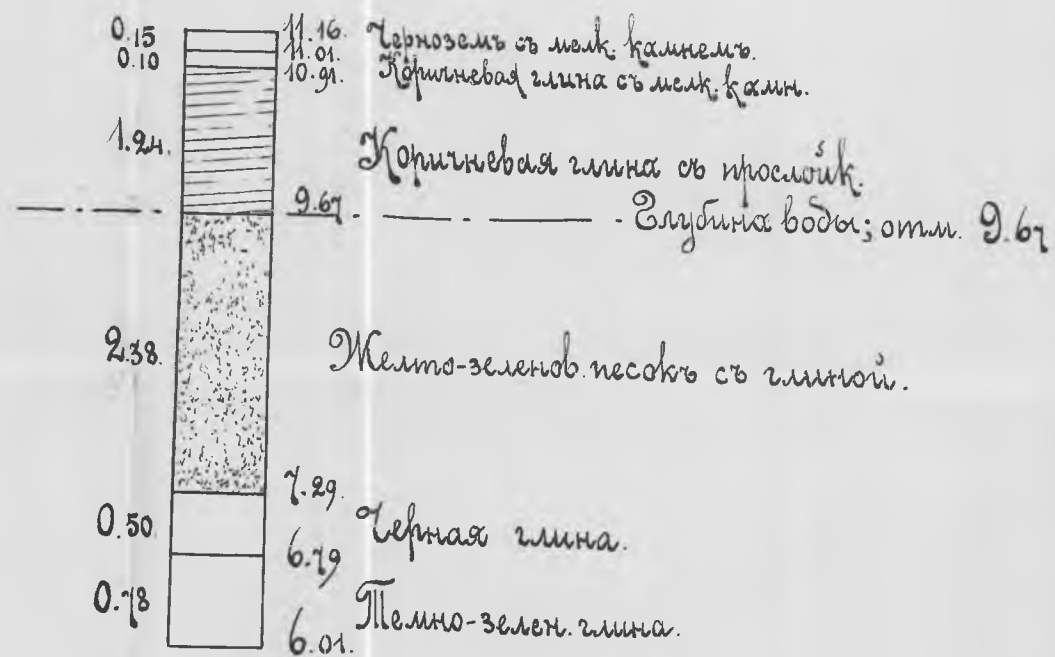 0.15 11.16. Черноземъ съ мелк. камнемъ.
0.10 11.01.
10.91. Коричневая глина съ мелк. камн.
1.24. Коричневая глина съ прослойк.
9.67 Глубина воды; отм. 9.67
2.38. Желто-зеленов. песокъ съ глиной.
7.29.
0.50. Черная глина.
6.79
0.78 Темно-зелен. глина.
6.01.